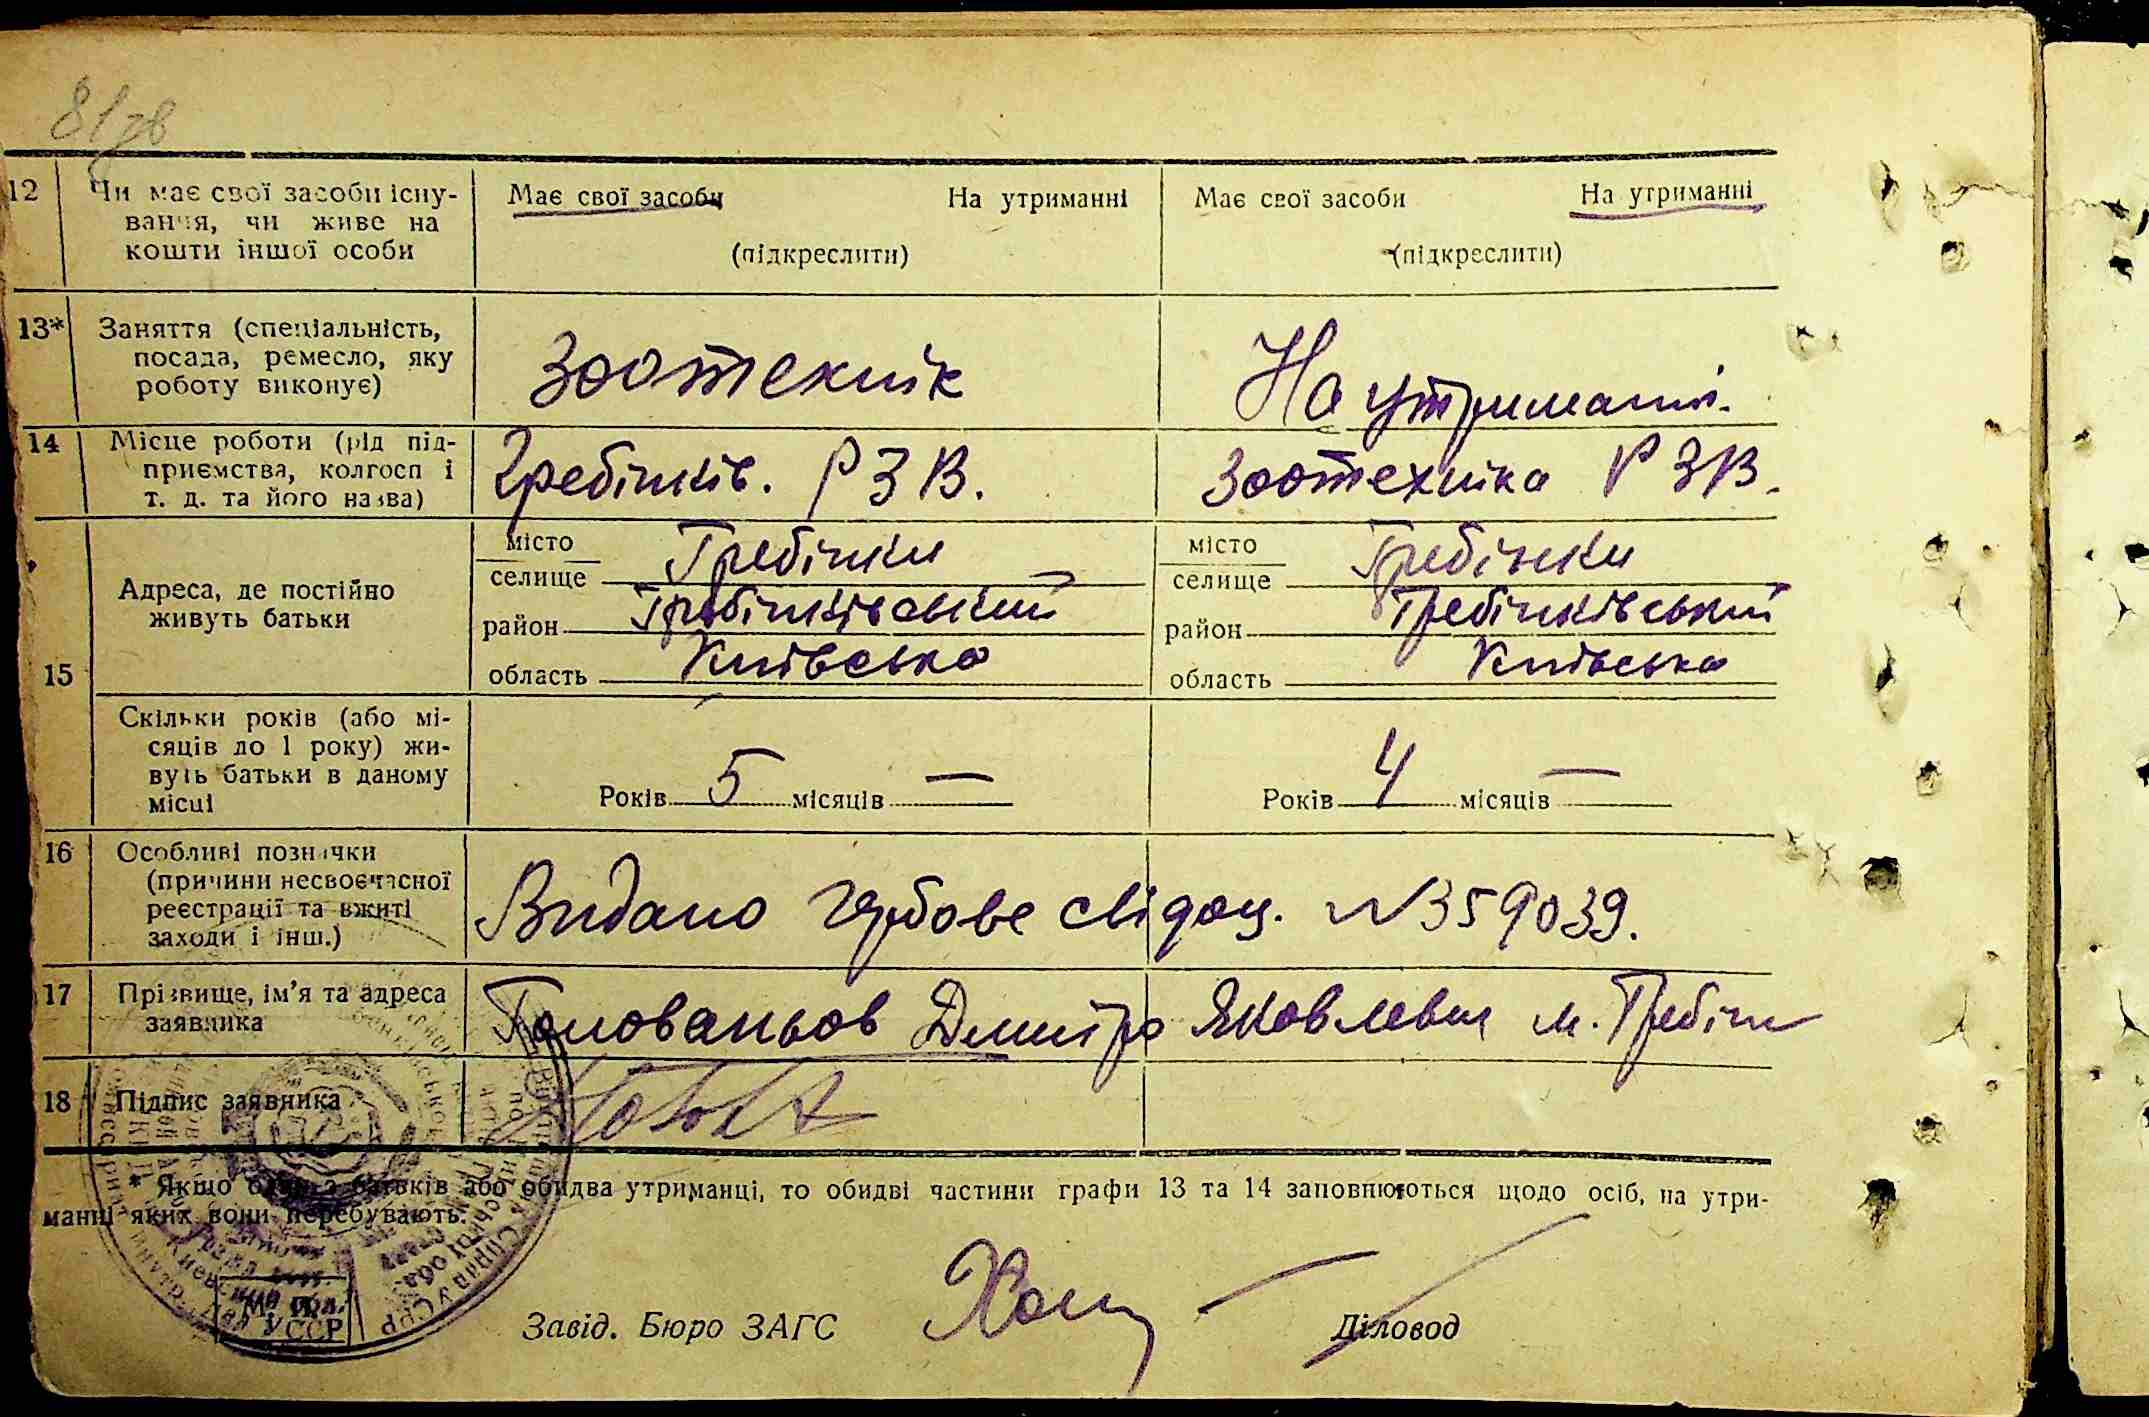 81 зв
12 Чи має свої засоби існу- Має свої засоби На утриманні Має свої засоби На утриманні
вання, чи живе на
кошти іншої особи (підкреслити) (підкреслити)
13* Заняття (спеціальність,
посада, ремесло, яку Зоотехнік На утриманні
роботу виконує)
14 Місце роботи (рід під-
приємства, колгосп і Гребінків. РЗВ. Зоотехніка РЗВ.
т. д. та його назва)
15 Адреса, де постійно
живуть батьки
місто Гребінки місто Гребінки
селище селище
район Гребінківський район Гребінківський
область Київська область Київська
Скільки років (або мі-
сяців до 1 року) жи-
вуть батьки в даному
місці Років 5 місяців — Років 4 місяців —
16 Особливі позначки
(причини несвоєчасної
реєстрації та вжиті Видано гербове свідоц. №359039.
заходи і інш.)
17 Прізвище, ім'я та адреса
заявника Голованьов Дмитро Яковлевич м. Гребінк
18 Підпис заявника
* Якщо один з батьків або обидва утриманці, то обидві частини графи 13 та 14 заповнюються щодо осіб, на утри-
манні яких вони перебувають.
М. П.
УССР
Завід. Бюро ЗАГС Діловод